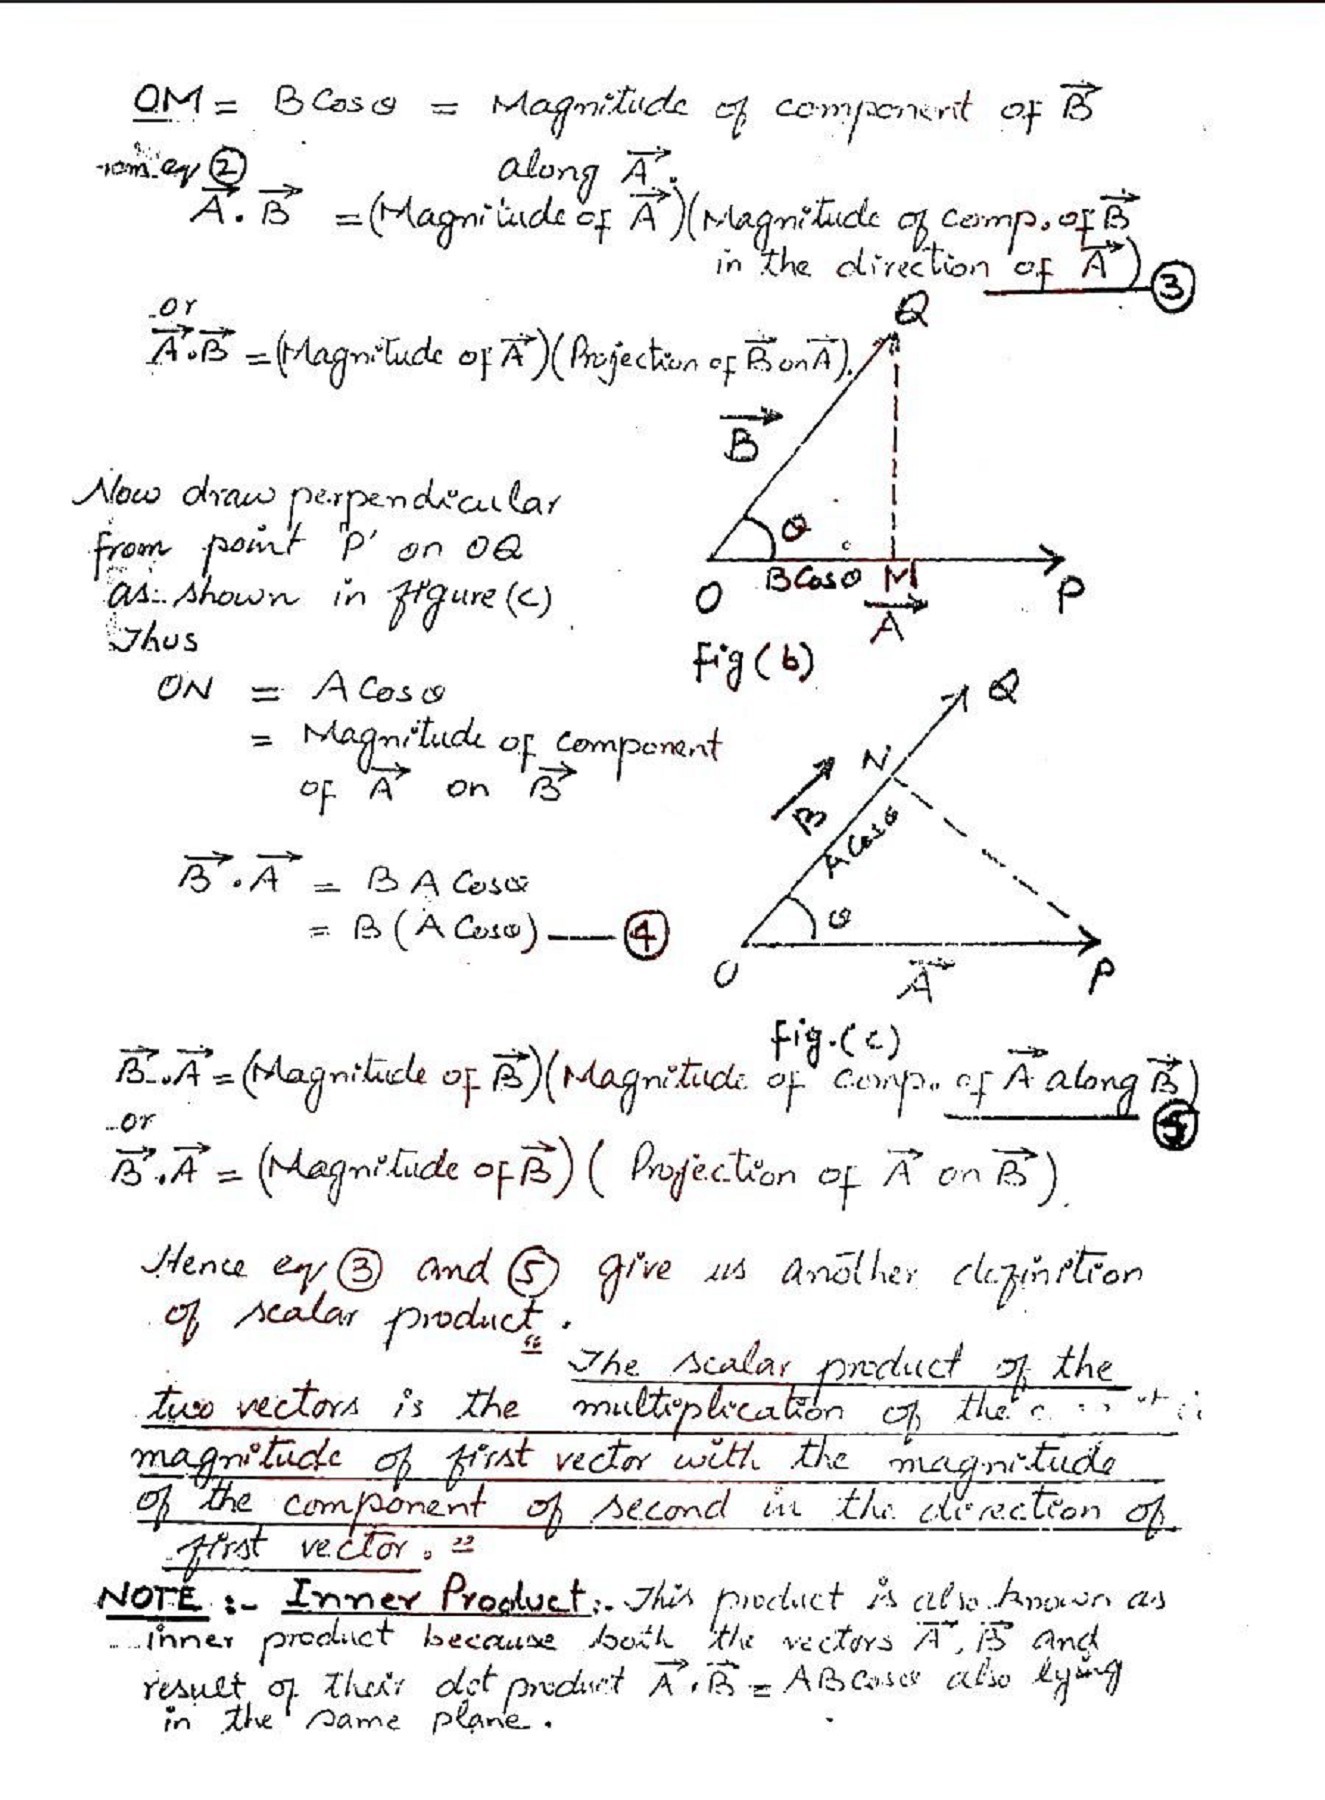 OM = B Cosθ = Magnitude of component of B⃗
along A⃗.
eq ②
A⃗ . B⃗ = (Magnitude of A⃗)(Magnitude of comp. of B⃗
in the direction of A⃗) ③
or
A⃗ . B⃗ = (Magnitude of A⃗)(Projection of B⃗ on A⃗).
Q
B⃗
θ
O
B Cosθ
M
P
A⃗
fig (b)
Now draw perpendicular
from point "P' on OQ
as shown in figure (c)
Thus
ON = A Cosθ
= Magnitude of component
of A⃗ on B⃗
B⃗ . A⃗ = B A Cosθ
= B (A Cosθ) — ④
Q
N
B
A Cosθ
θ
O
A⃗
P
fig. (c)
B⃗ . A⃗ = (Magnitude of B⃗)(Magnitude of comp. of A⃗ along B⃗)
⑤
or
B⃗ . A⃗ = (Magnitude of B⃗) ( Projection of A⃗ on B⃗ ).
Hence eq ③ and ⑤ give us another definition
of scalar product.
“ The scalar product of the
two vectors is the multiplication of the
magnitude of first vector with the magnitude
of the component of second in the direction of
first vector. ”
NOTE :- Inner Product:- This product is also known as
inner product because both the vectors A⃗, B⃗ and
result of their dot product A⃗ . B⃗ = A B Cosθ also lying
in the same plane.